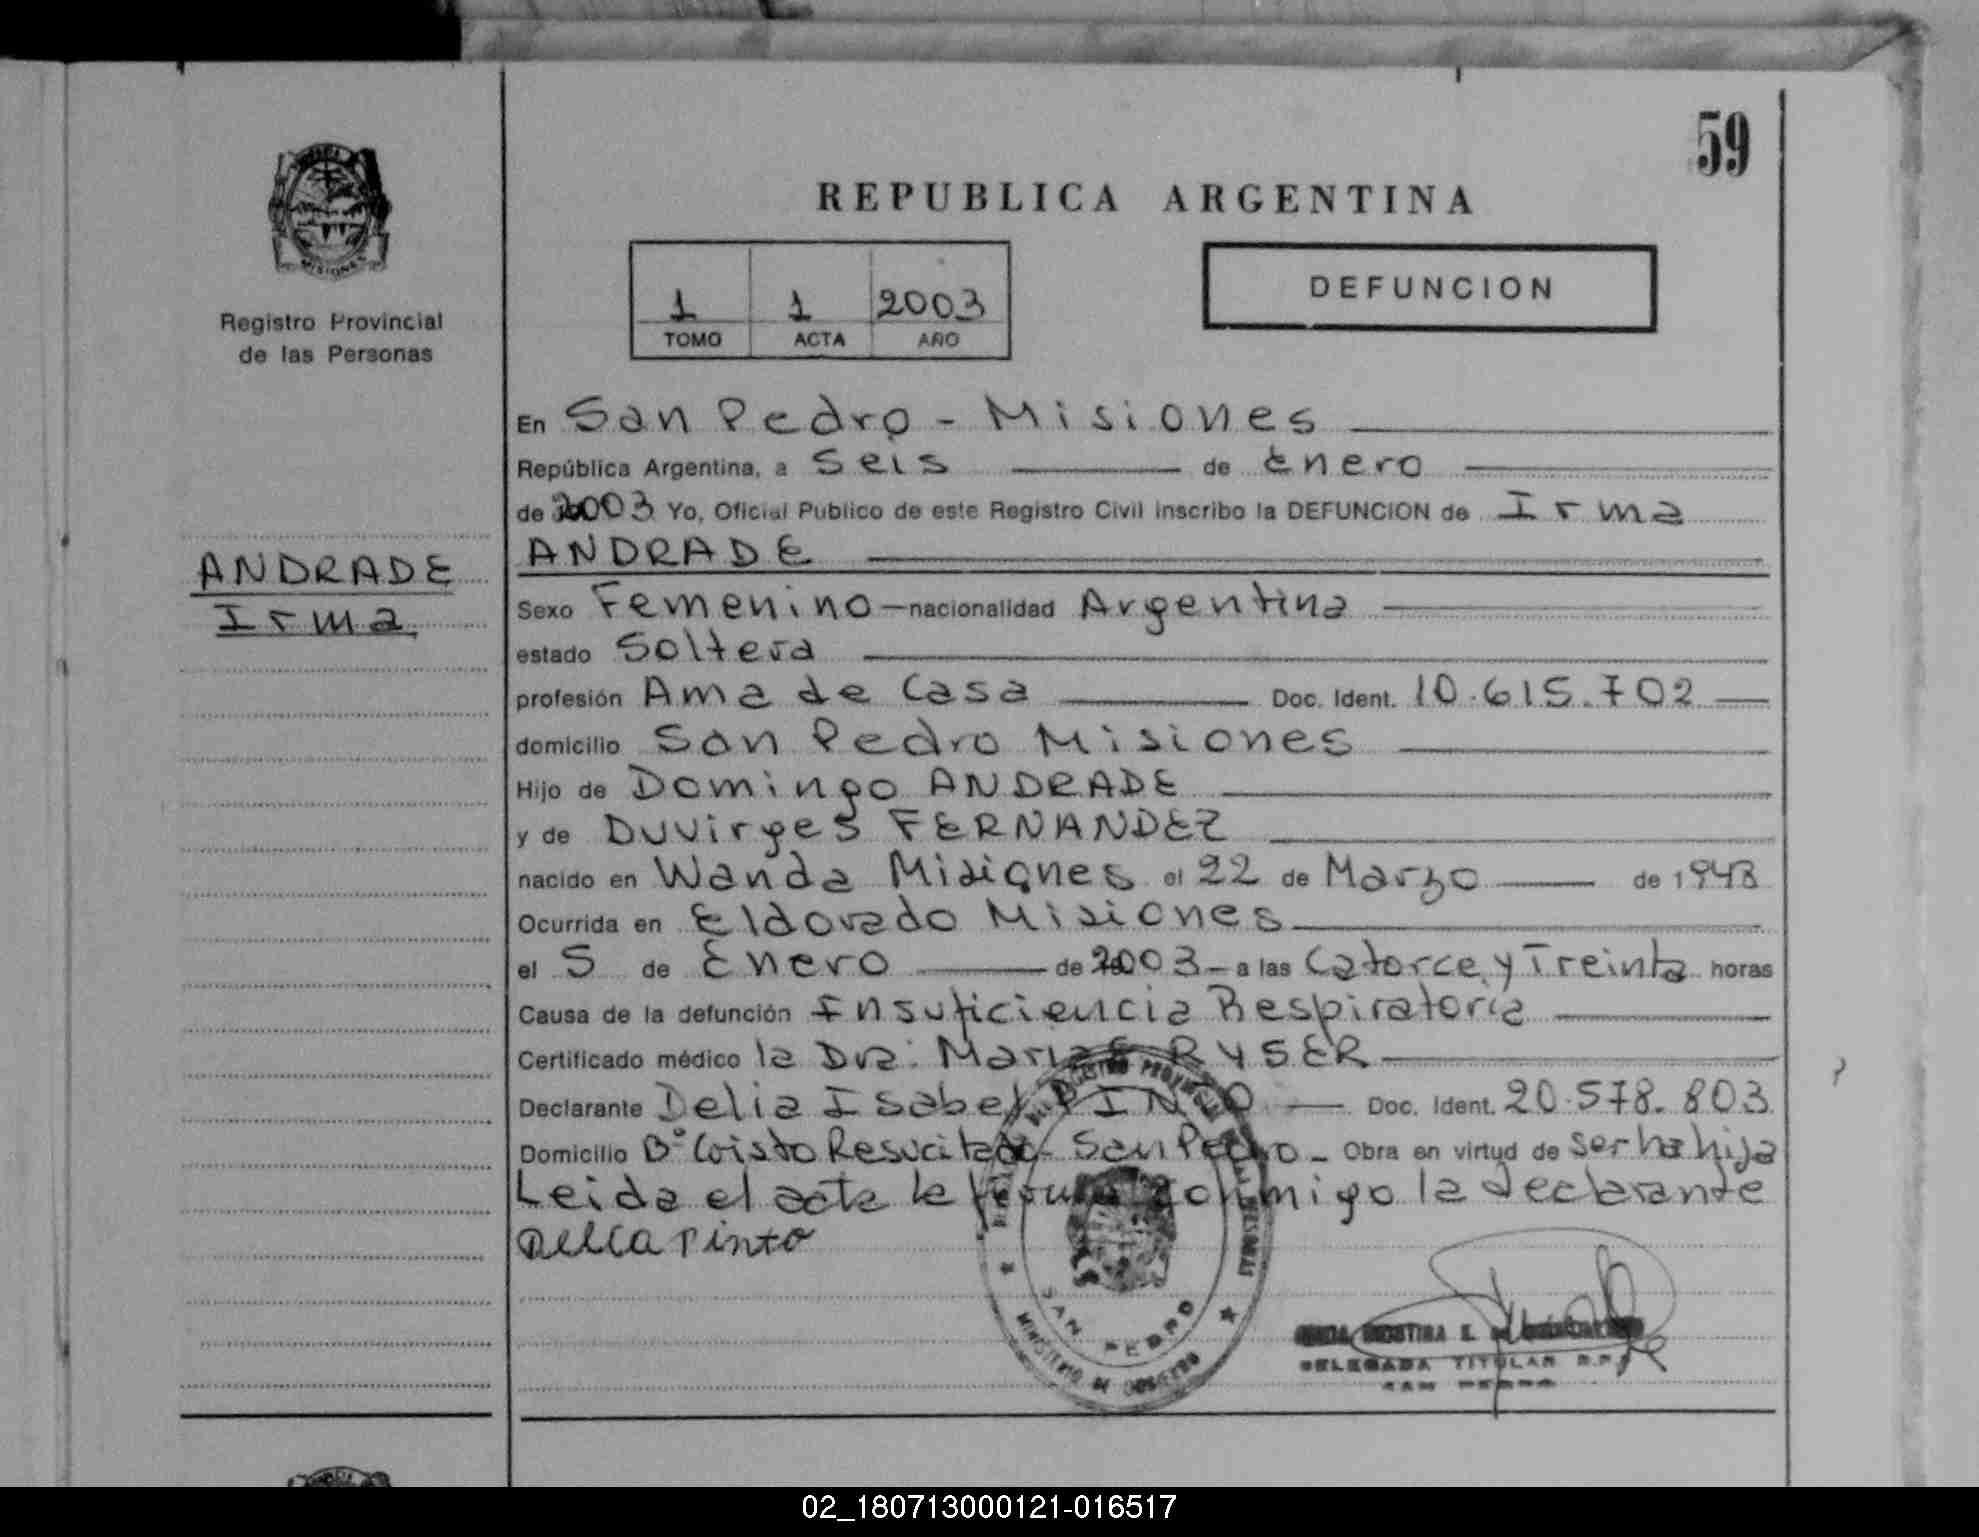 59
REPUBLICA ARGENTINA
MISIONES
Registro Provincial
de las Personas
1 1 2003
TOMO ACTA AÑO
DEFUNCION
ANDRADE
Irma
En San Pedro - Misiones
República Argentina, a Seis de Enero
de 2003 Yo, Oficial Publico de este Registro Civil inscribo la DEFUNCION de Irma
ANDRADE
Sexo Femenino - nacionalidad Argentina
estado Soltera
profesión Ama de Casa Doc. Ident. 10.615.702
domicilio San Pedro Misiones
Hijo de Domingo ANDRADE
y de Duvirges FERNANDEZ
nacido en Wanda Misiones el 22 de Marzo de 1948
Ocurrida en Eldorado Misiones
el 5 de Enero de 2003 - a las Catorce y Treinta horas
Causa de la defunción Insuficiencia Respiratoria
Certificado médico la Dra. Maria RYSER
Declarante Delia Isabel PINTO Doc. Ident. 20.578.803
Domicilio Bº Cristo Resucitado - San Pedro - Obra en virtud de ser hija
Leida el acta la firma conmigo la declarante
Delia Pinto
SAN PEDRO
MINISTERIO DE GOBIERNO
DELEGADA TITULAR R.P.P.
SAN PEDRO
02_180713000121-016517